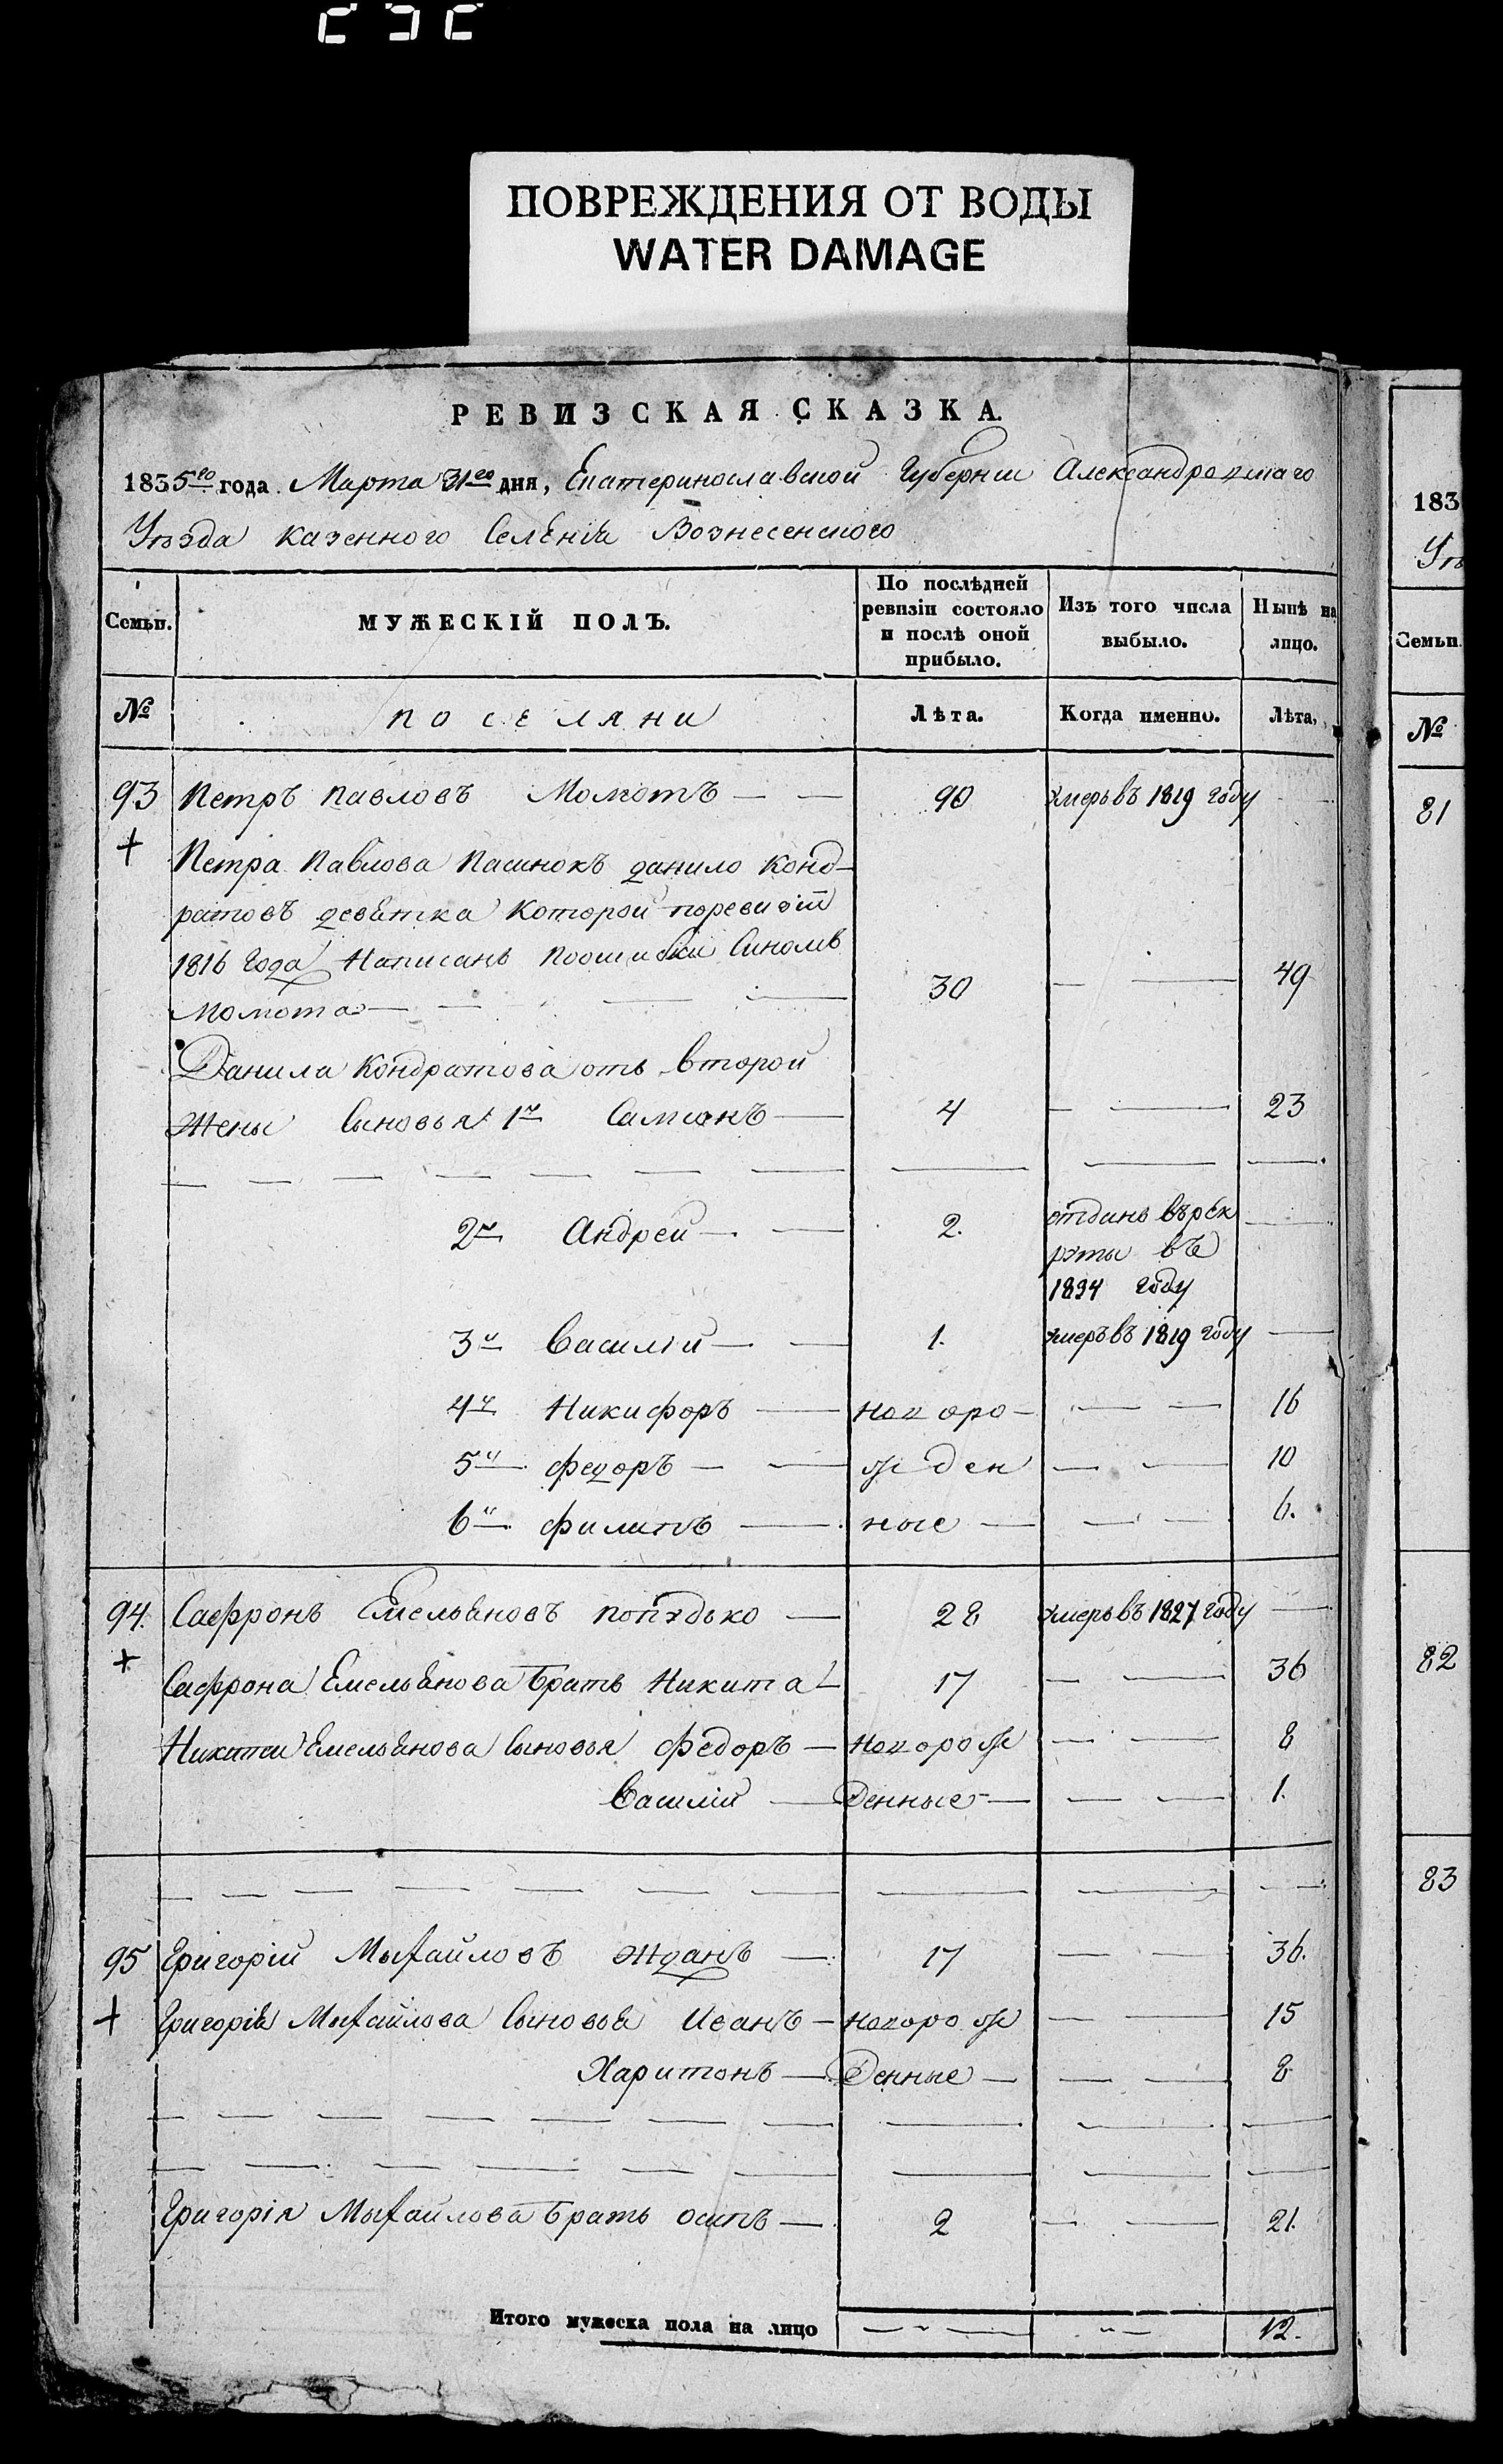 ПОВРЕЖДЕНИЯ ОТ ВОДЫ
WATER DAMAGE
РЕВИЗСКАЯ СКАЗКА.
1835го года Марта 31го дня, Екатеринославской Губернии Александровскаго
Уѣзда казенного Селенія Вознесенского
Семьи.
МУЖЕСКІЙ ПОЛЪ.
По послѣдней ревизіи состояло и послѣ оной прибыло.
Изъ того числа выбыло.
Нынѣ на лицо.
№
поселяни
Лѣта.
Когда именно.
Лѣта.
93 Петръ Павловъ Момотъ — — 90 умеръ въ 1819 году —
+ Петра Павлова Пасинокъ данило Конд-
ратовъ девятка которой поревизіи
1816 года написанъ поошибки Синомъ
Момота — — — — 30 — — 49
Данила Кондратова отъ второй
Жены Сыновья 1й Самсонъ — 4 — — 23
2й Андрей — — 2. отданъ върек
руты въ
1834 году
3й Василій — — 1. умеръ въ 1819 году —
4й Никифоръ — новоро — — — 16
5й Федоръ — — жден — — 10
6й Филипъ — ные — — — 6.
94. Сафронъ Емельяновъ попудько — 28 умеръ въ 1827 году —
+ Сафрона Емельянова братъ Никита — 17 — — 36
Никиты Емельянова Сыновья Федоръ — новорож — — 8
Василій — денные — — — 1.
95 Григорій Мыхайловъ Жданъ — 17 — — 36.
+ Григорія Мыхайлова Сыновья Иванъ — новорож — — 15
Харитонъ — денные — — — 8
Григорія Мыхайлова братъ осипъ — 2 — — 21.
Итого мужеска пола на лицо — " — — " — 12.
183
Уѣ
Семьи.
№
81
82
83